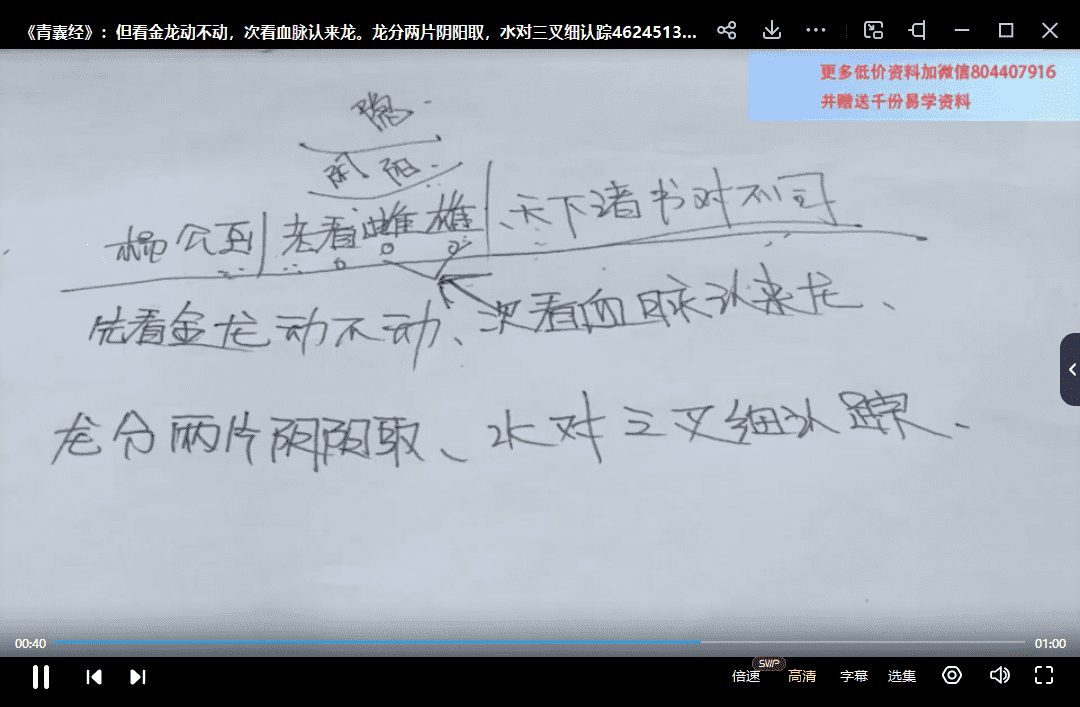 《青囊经》：但看金龙动不动，次看血脉认来龙。龙分两片阴阳取，水对三叉细认踪4624513...
更多低价资料加微信804407916
并赠送千份易学资料
阴阳
杨公 看雌雄、天下诸书对不同
先看金龙动不动、次看血脉认来龙、
龙分两片阴阳取、水对三叉细认踪、
00:40
01:00
倍速
SVIP
高清
字幕
选集